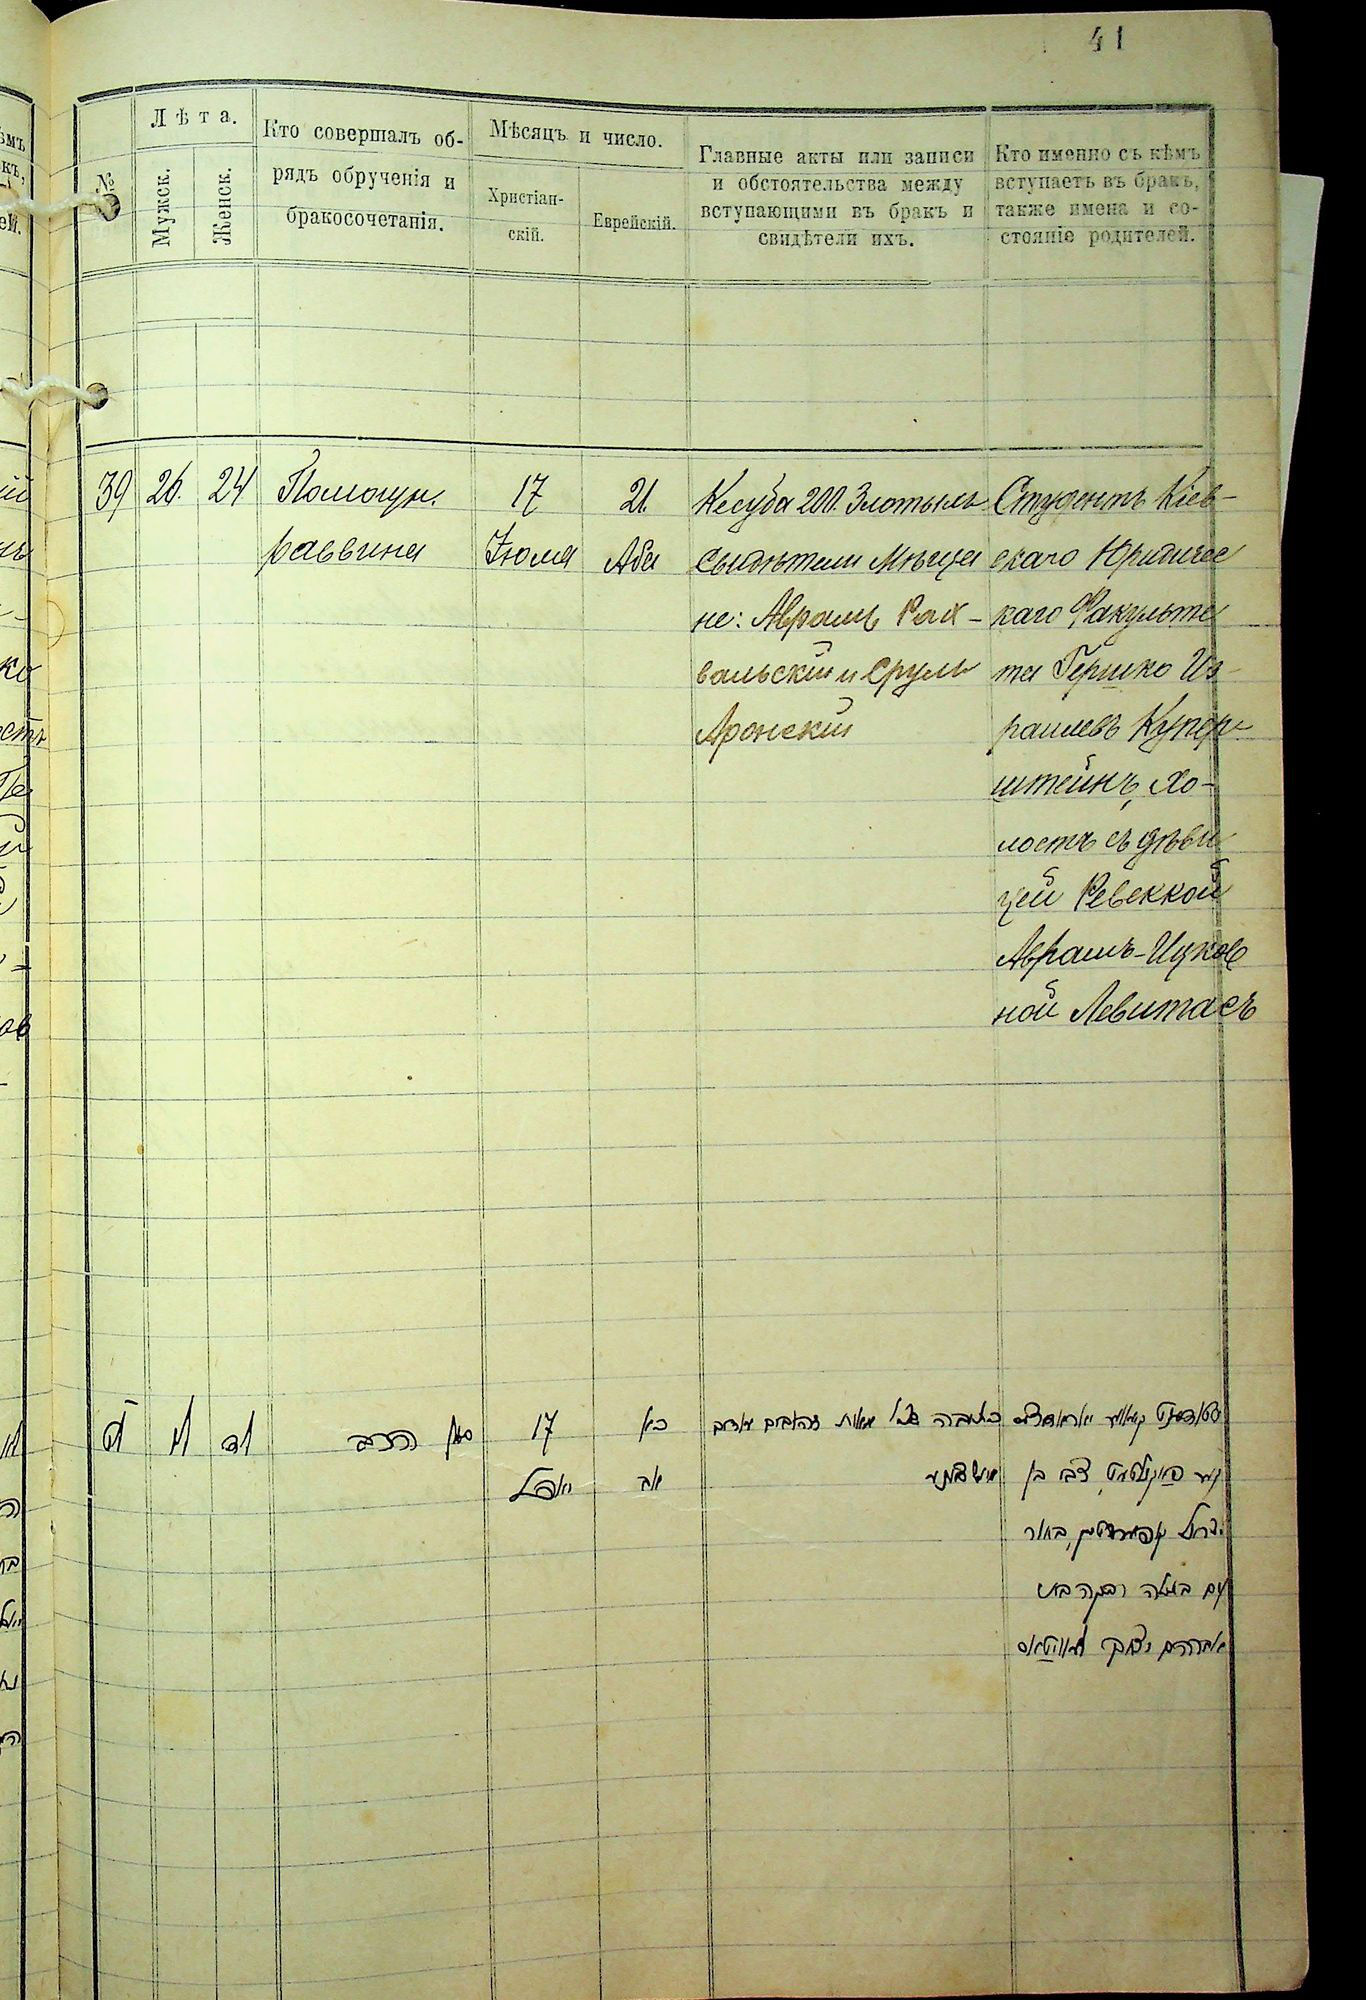 41
№
Лѣта.
Мужск.
Женск.
Кто совершалъ об-
рядъ обрученія и
бракосочетанія.
Мѣсяцъ и число.
Христіан-
скій.
Еврейскій.
Главные акты или записи
и обстоятельства между
вступающими въ бракъ и
свидѣтели ихъ.
Кто именно съ кѣмъ
вступаетъ въ бракъ,
также имена и со-
стояніе родителей.
39
26.
24
Помощн.
раввина
17
Іюля
21
Ава
Кесуба 200. Злотыхъ
Свидѣтели Мѣща
не: Аврамъ Рах-
вальскій и Сруль
Аронскій
Студентъ Кіев-
скаго Юридичес
каго Факульте
та Гершко Из-
раилевъ Купер-
штейнъ, хо-
лостъ съ дѣви
цей Ревеккой
Аврамъ-Ицков
ной Левитасъ
סגן הרב
17
יולי
כא
אב
צבי בן
בחור
עם בתולה רבקה בת
אברהם יצחק לעוויטאס